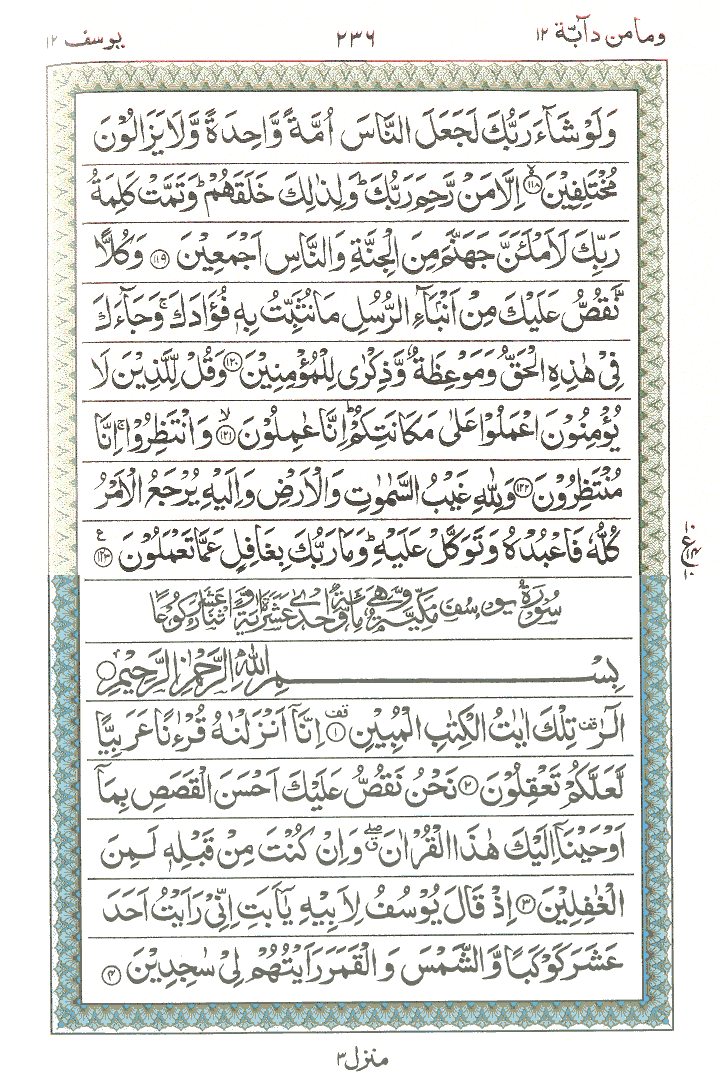 وما من دآبة ١٢
٢٣٦
يوسف ١٢
وَلَوْ شَآءَ رَبُّكَ لَجَعَلَ النَّاسَ اُمَّةً وَّاحِدَةً وَّلَا يَزَالُوْنَ
مُخْتَلِفِيْنَ ۙ﴿١١٨﴾ اِلَّا مَنْ رَّحِمَ رَبُّكَ ؕ وَلِذٰلِكَ خَلَقَهُمْ ؕ وَتَمَّتْ كَلِمَةُ
رَبِّكَ لَاَمْلَئَنَّ جَهَنَّمَ مِنَ الْجِنَّةِ وَالنَّاسِ اَجْمَعِيْنَ ﴿١١٩﴾ وَكُلًّا
نَّقُصُّ عَلَيْكَ مِنْ اَنْۢبَآءِ الرُّسُلِ مَا نُثَبِّتُ بِهٖ فُؤَادَكَ ۚ وَجَآءَكَ
فِىْ هٰذِهِ الْحَقُّ وَمَوْعِظَةٌ وَّذِكْرٰى لِلْمُؤْمِنِيْنَ ﴿١٢٠﴾ وَقُلْ لِّلَّذِيْنَ لَا
يُؤْمِنُوْنَ اعْمَلُوْا عَلٰى مَكَانَتِكُمْ ؕ اِنَّا عٰمِلُوْنَ ۙ﴿١٢١﴾ وَانْتَظِرُوْا ۚ اِنَّا
مُنْتَظِرُوْنَ ﴿١٢٢﴾ وَلِلّٰهِ غَيْبُ السَّمٰوٰتِ وَالْاَرْضِ وَاِلَيْهِ يُرْجَعُ الْاَمْرُ
كُلُّهٗ فَاعْبُدْهُ وَتَوَكَّلْ عَلَيْهِ ؕ وَمَا رَبُّكَ بِغَافِلٍ عَمَّا تَعْمَلُوْنَ ﴿١٢٣﴾ ع
ع
١٠
سُوْرَةُ يُوْسُفَ مَكِّيَّةٌ وَّهِىَ مِائَةٌ وَّاِحْدٰى عَشْرَةَ اٰيَةً وَّاثْنَا عَشَرَ رُكُوْعًا
بِسْمِ اللّٰهِ الرَّحْمٰنِ الرَّحِيْمِ
الٓرٰ ۟ قف تِلْكَ اٰيٰتُ الْكِتٰبِ الْمُبِيْنِ ﴿١﴾ قف اِنَّآ اَنْزَلْنٰهُ قُرْءٰنًا عَرَبِيًّا
لَّعَلَّكُمْ تَعْقِلُوْنَ ﴿٢﴾ نَحْنُ نَقُصُّ عَلَيْكَ اَحْسَنَ الْقَصَصِ بِمَآ
اَوْحَيْنَآ اِلَيْكَ هٰذَا الْقُرْاٰنَ ۖق وَاِنْ كُنْتَ مِنْ قَبْلِهٖ لَمِنَ
الْغٰفِلِيْنَ ﴿٣﴾ اِذْ قَالَ يُوْسُفُ لِاَبِيْهِ يٰٓاَبَتِ اِنِّىْ رَاَيْتُ اَحَدَ
عَشَرَ كَوْكَبًا وَّالشَّمْسَ وَالْقَمَرَ رَاَيْتُهُمْ لِىْ سٰجِدِيْنَ ﴿٤﴾
منزل ٣